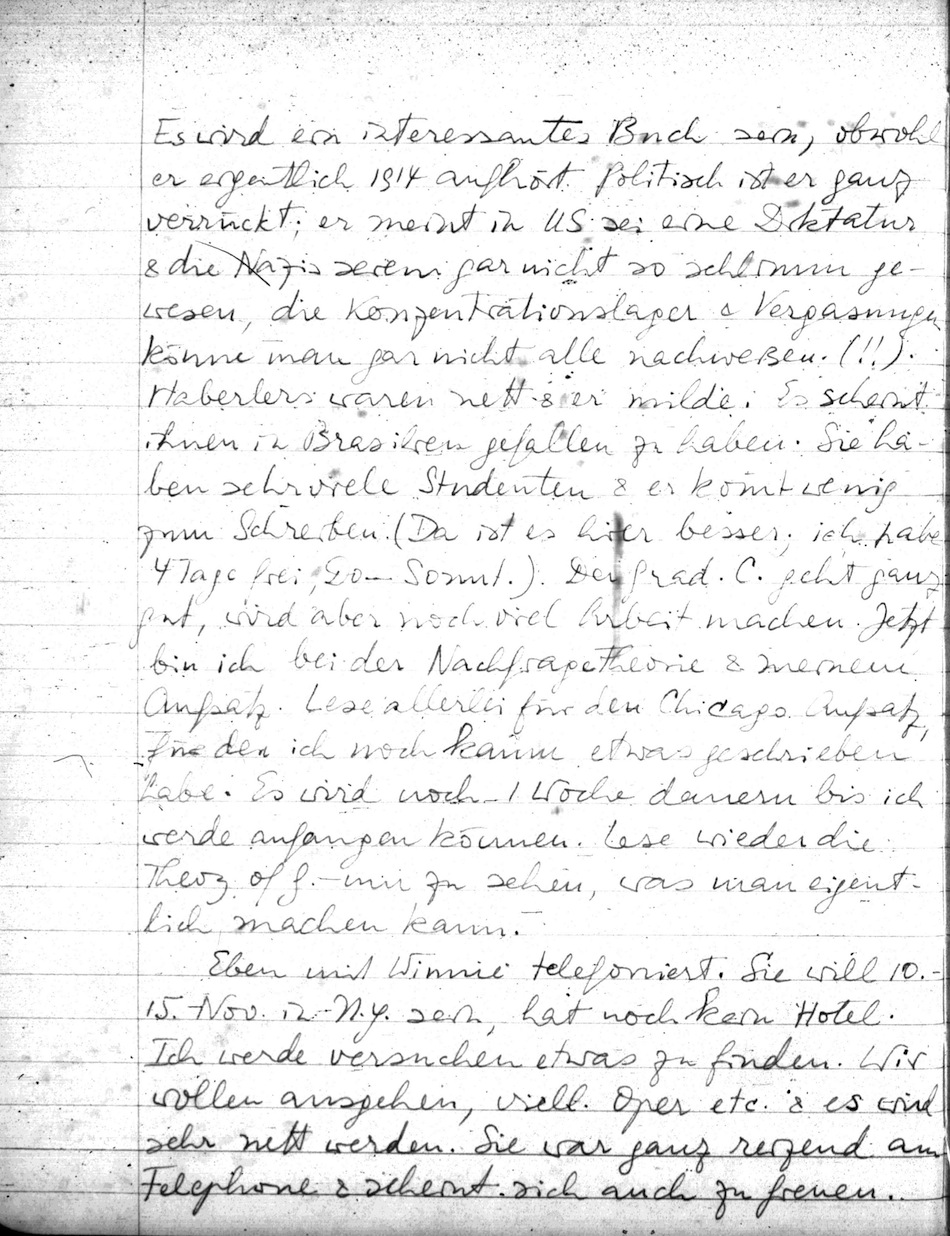 Es wird ein interessantes Buch sein, obwohl
er eigentlich 1914 aufhört. Politisch ist er ganz
verrückt; er meint in US sei eine Diktatur
& die Nazis seien gar nicht so schlimm ge-
wesen, die Konzentrationslager & Vergasungen
könne man gar nicht alle nachweisen. (!!).
Haberlers waren nett & er milde. Es scheint
ihnen in Brasilien gefallen zu haben. Sie ha-
ben sehr viele Studenten & er komt wenig
zum Schreiben. (Da ist es hier besser; ich habe
4 Tage frei, Do – Sonnt.). Der Grad. C. geht ganz
gut, wird aber noch viel Arbeit machen. Jetzt
bin ich bei der Nachfragetheorie & meinem
Aufsatz. Lese allerlei für den Chicago Aufsatz,
für den ich noch kaum etwas geschrieben
habe. Es wird noch 1 Woche dauern bis ich
werde anfangen können. Lese wieder die
Theory of G. – um zu sehen, was man eigent-
lich machen kann.
Eben mit Winnie telefoniert. Sie will 10.-
15. Nov. in N.Y. sein, hat noch kein Hotel.
Ich werde versuchen etwas zu finden. Wir
wollen ausgehen, viell. Oper etc. & es wird
sehr nett werden. Sie war ganz reizend am
Telephone & scheint sich auch zu freuen.